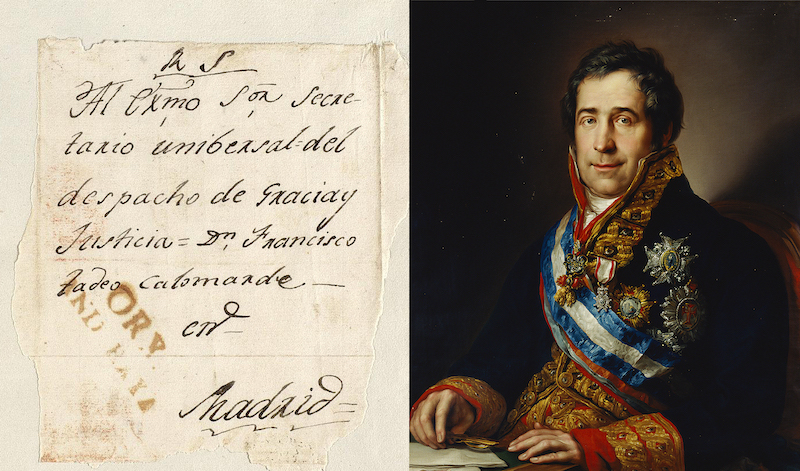 R S
Al Exmo Sor. Secre-
tario unibersal=del
despacho de Graciay
Justicia= Dn. Francisco
tadeo Calomarde
en
Madrid=